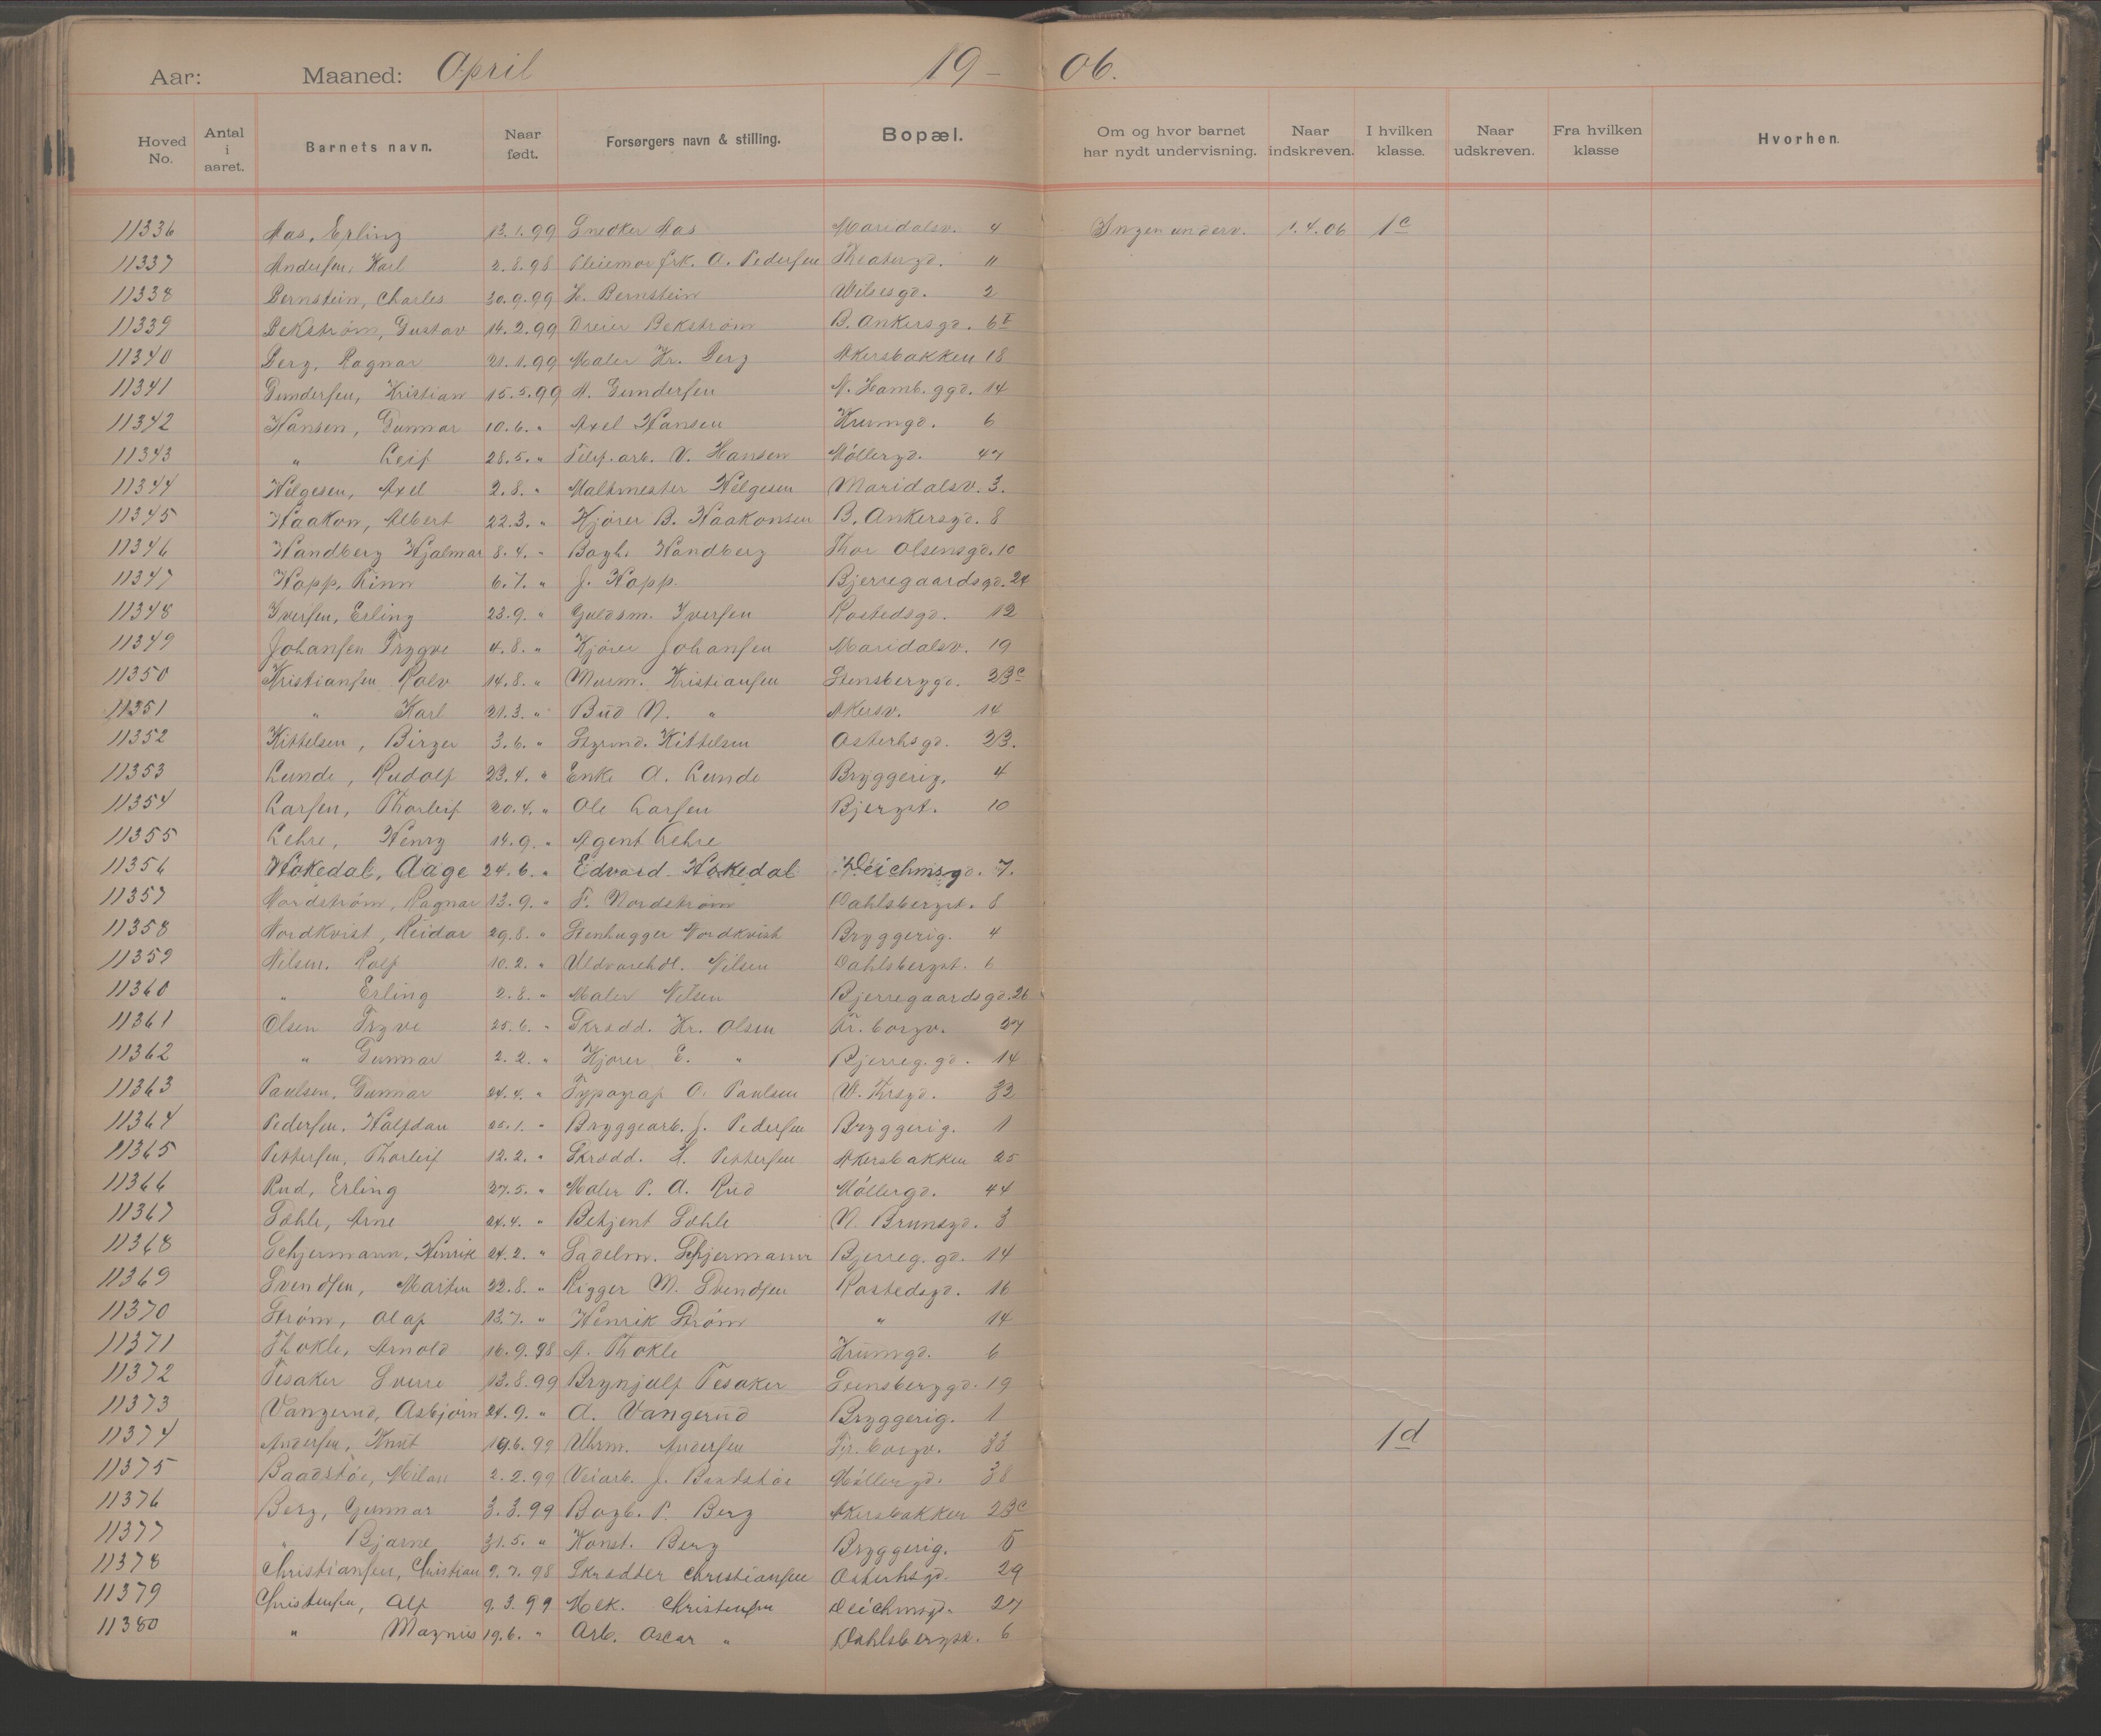 Aar: Maaned: April 19 – 06.
Hoved No. Antal i aaret. Barnets navn. Naar født. Forsørgers navn & stilling. Bopæl. Om og hvor barnet har nydt undervisning. Naar indskreven. I hvilken klasse. Naar udskreven. Fra hvilken klasse Hvorhen.
11336 Aas, Erling 13.1.99 Snedker Aas Maridalsv. 4 Ingen underv. 1.4.06 1c
11337 Andersen, Karl 2.8.98 Pleiemor frk. A. Pedersen Theatergd. 11
11338 Bernstein, Charles 30.9.99 H. Bernstein Wilsesgd. 2
11339 Bekstrøm, Gustav 14.2.99 Dreier Bekstrøm B. Ankersgd. 6 I
11340 Berg, Ragnar 21.1.99 Maler Kr. Berg Akersbakken 18
11341 Gundersen, Kristian 15.5.99 A. Gundersen N. Hamb. ggd. 14
11342 Hansen, Gunnar 10.6. " Axel Hansen Krumgd. 6
11343 " Leif 28.5. " Telef. arb. V. Hansen Møllergd. 47
11344 Helgesen, Axel 2.8. " Maltmester Helgesen Maridalsv. 3.
11345 Haakon, Albert 22.3. " Kjører B. Haakonsen B. Ankersgd. 8
11346 Handberg Hjalmar 8.4. " Bogh. Handberg Thor Olsensgd. 10
11347 Hopp, Finn 6.7. " J. Hopp. Bjerregaardsgd. 24
11348 Iversen, Erling 23.9. " Guldsm. Iversen Rostedsgd. 12
11349 Johansen Trygve 4.8. " Kjører Johansen Maridalsv. 19
11350 Kristiansen Rolv 14.8. " Murm. Kristiansen Stensberggd. 23c
11351 " Karl 21.3. " Bud N. " Akersv. 14
11352 Kittelsen, Birger 3.6. " Styrmd. Kittelsen Osterhsgd. 23.
11353 Lunde, Rudolf 23.4. " Enke A. Lunde Bryggerig. 4
11354 Larsen, Thorleif 20.4. " Ole Larsen Bjergst. 10
11355 Lehre, Henry 14.9. " Agent Lehre
11356 Hokedal, Aage 24.6. " Edvard Hokedal Deichmsgd. 7.
11357 Nordstrøm, Ragnar 13.9. " F. Nordstrøm Dahlsbergst. 8
11358 Nordkvist, Reidar 29.8. " Stenhugger Nordkvist Bryggerig. 4
11359 Nilsen, Rolf 10.2. " Uldvarehdl. Nilsen Dahlsbergst. 6
11360 " Erling 2.8. " Maler Nilsen Bjerregaardsgd. 26
11361 Olsen Trygve 25.6. " Skrædd. Kr. Olsen Fr. borgv. 27
11362 " Gunnar 2.2. " Kjører E. " Bjerreg. gd. 14
11363 Paulsen, Gunnar 24.4. " Typograf O. Paulsen W. Thrsgd. 32
11364 Pedersen, Halfdan 25.1. " Bryggearb. J. Pedersen Bryggerig. 1
11365 Pettersen, Thorleif 12.2. " Skrædd. H. Pettersen Akersbakken 25
11366 Rud, Erling 27.5. " Maler P. A. Rud Møllergd. 44
11367 Sæhle, Arne 24.4. " Betjent Sæhle N. Brunsgd. 3
11368 Schjermann, Henrik 24.2. " Sadelm. Schjermann Bjerreg. gd. 14
11369 Svendsen, Martin 22.8. " Rigger M. Svendsen Rostedsgd. 16
11370 Strøm, Olaf 13.7. " Henrik Strøm " 14
11371 Thokle, Arnold 16.9.98 A. Thokle Krumgd. 6
11372 Tesaker Sverre 13.8.99 Brynjulf Tesaker Stensberggd. 19
11373 Vangerud, Asbjørn 24.9. " A. Vangerud Bryggerig. 1
11374 Andersen, Knut 19.6.99 Uhrm. Andersen Fr. borgv. 33 1d
11375 Baadstøe, Milan 2.2.99 Veiarb. J. Baadstøe Møllergd. 38
11376 Berg, Gunnar 3.3.99 Bogb. P. Berg Akersbakken 23c
11377 " Bjarne 31.5. " Konst. Berg Bryggerig. 5
11378 Christiansen, Christian 9.7.98 Skrædder Christiansen Osterhsgd. 29
11379 Christensen, Alf 9.3.99 Mek. Christensen Deichmsgd. 27
11380 " Magnus 19.6. " Arb. Oscar " Dahlsbergst. 6